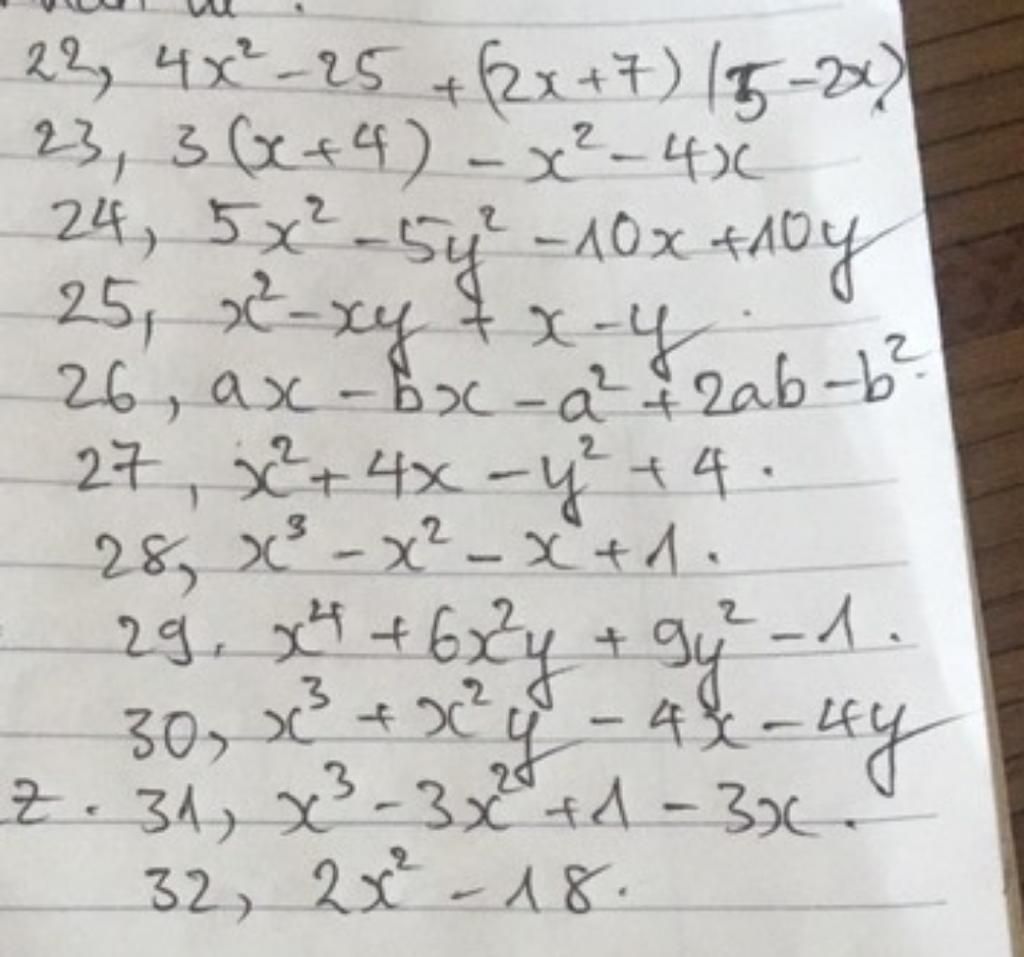 22, 4x² - 25 + (2x+7)(5-2x)
23, 3(x+4) - x² - 4x
24, 5x² - 5y² - 10x + 10y
25, x² - xy + x - y.
26, ax - bx - a² + 2ab - b².
27, x² + 4x - y² + 4.
28, x³ - x² - x + 1.
29. x⁴ + 6x²y + 9y² - 1.
30, x³ + x²y - 4x - 4y
z. 31, x³ - 3x² + 1 - 3x.
32, 2x² - 18.